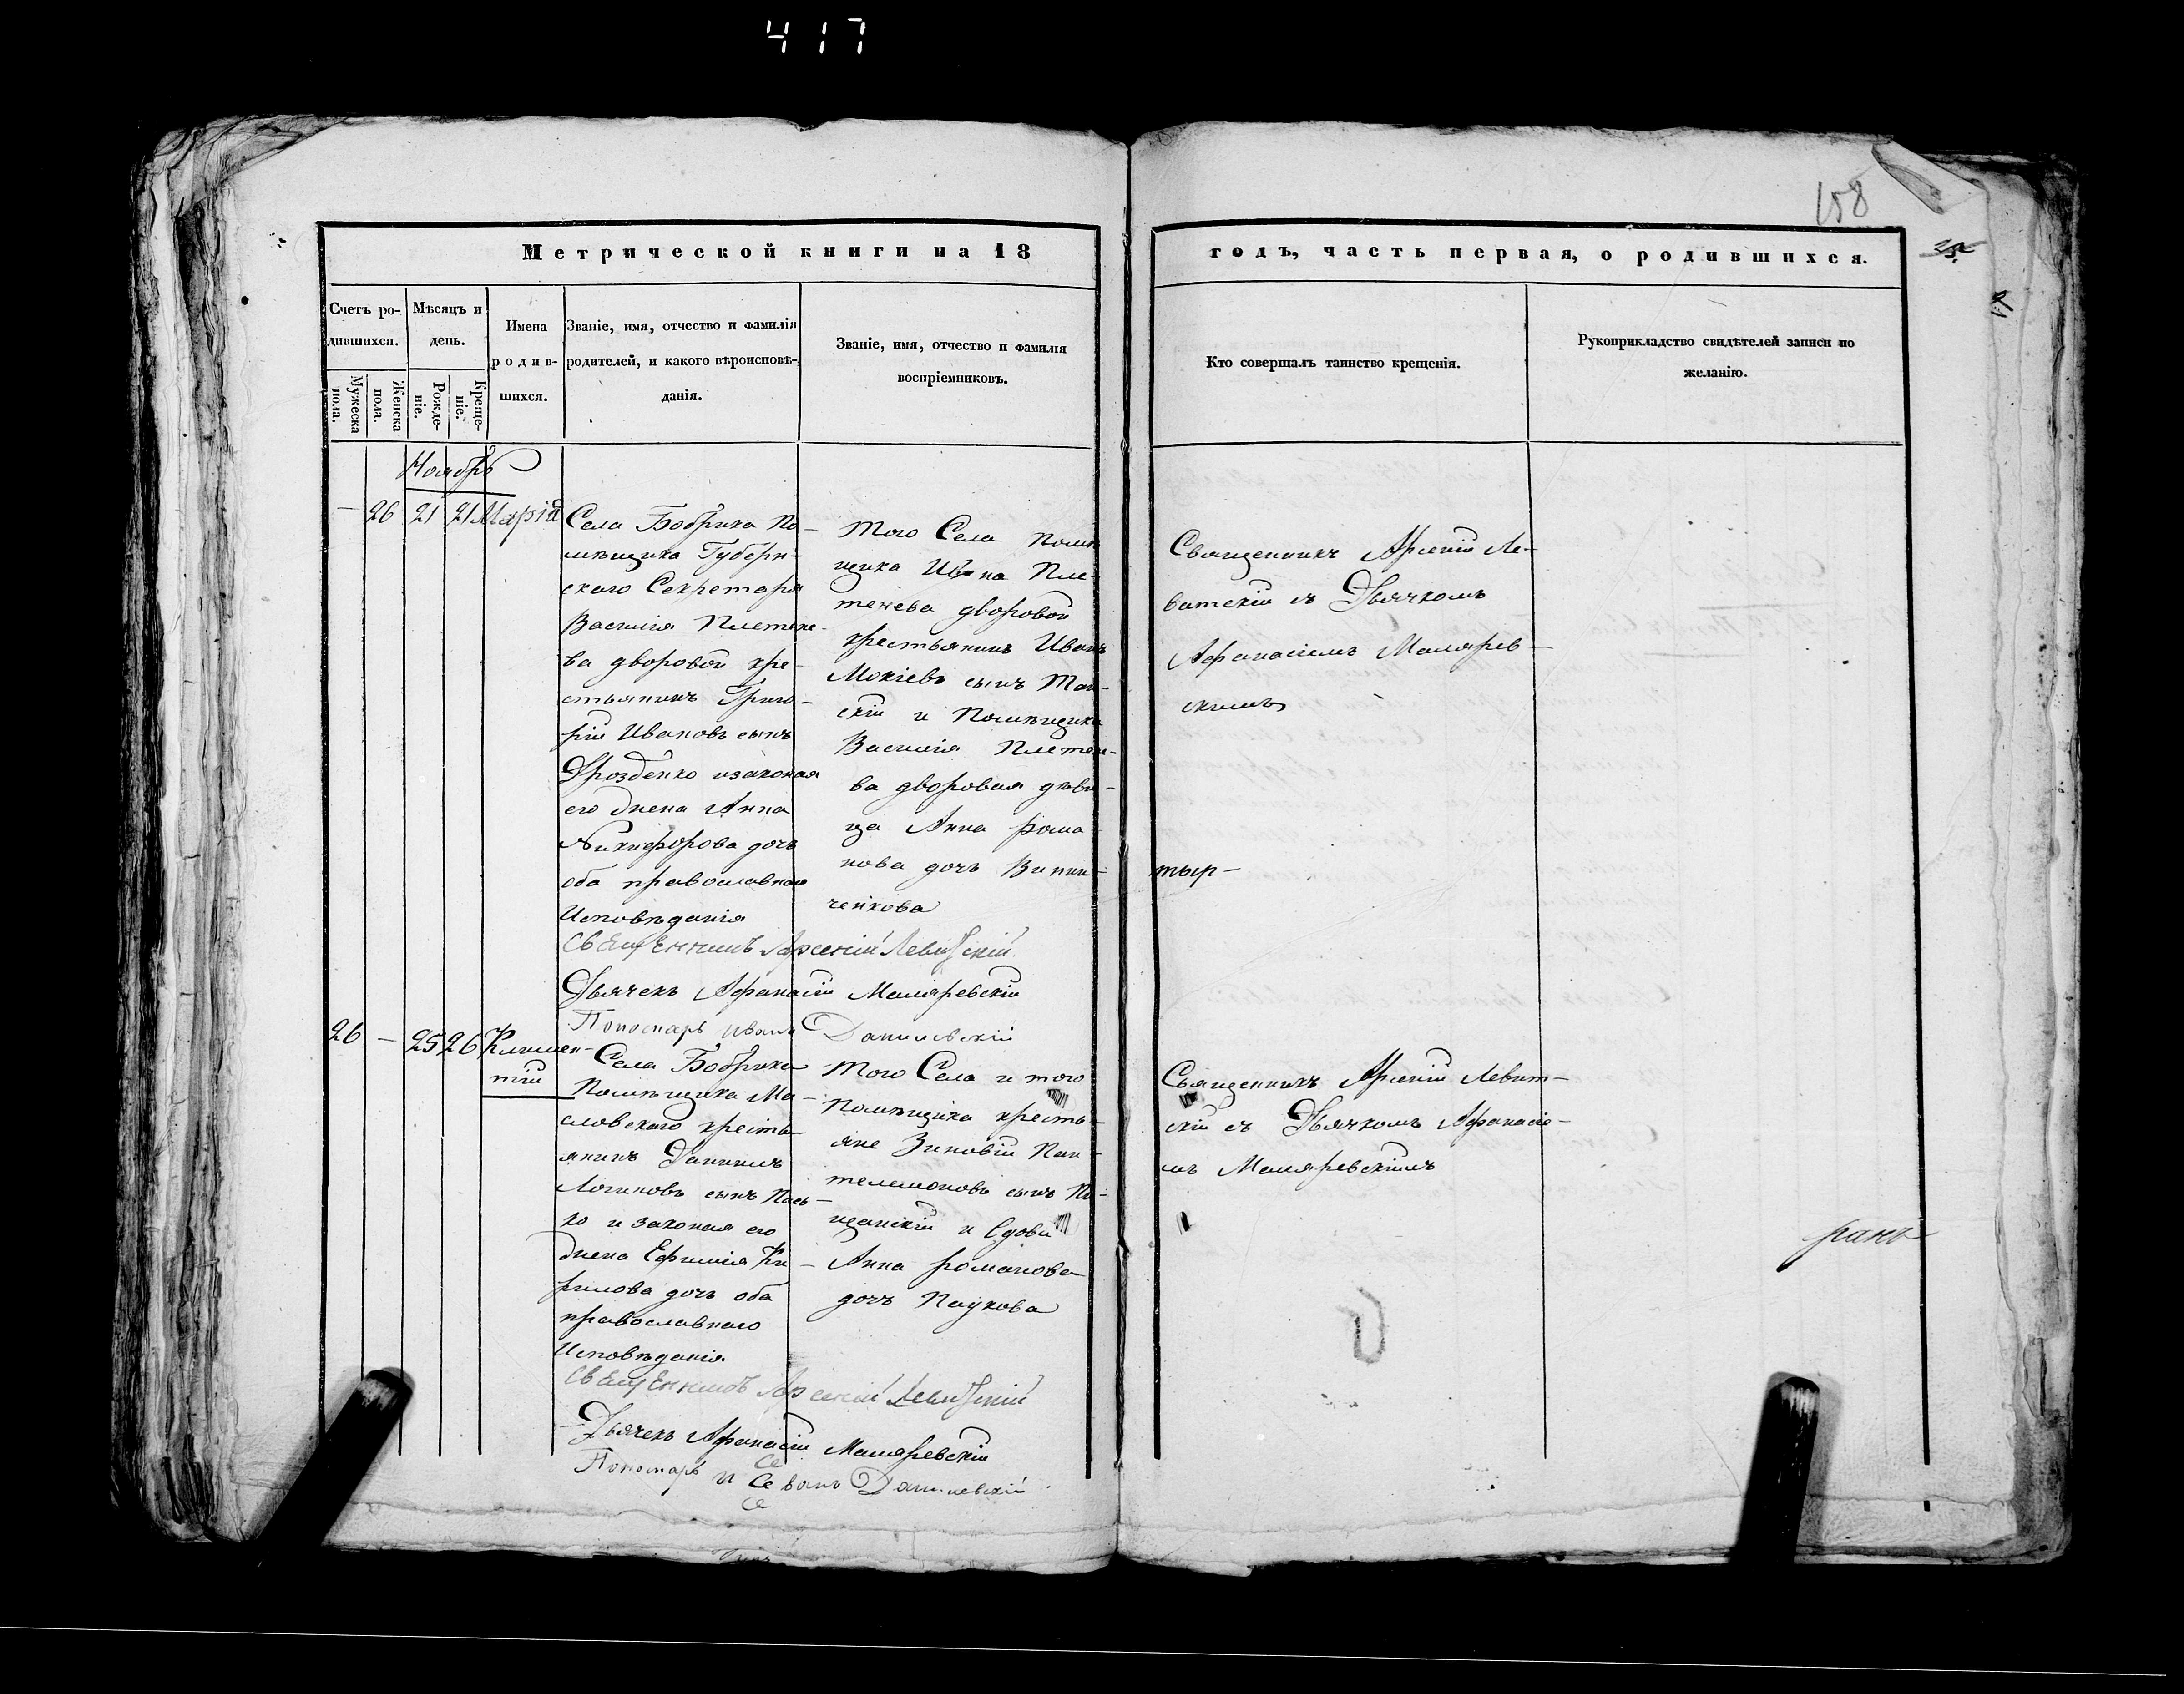 417
158
Метрической книги на 18
годъ, часть первая, о родившихся.
Счетъ ро-
дившихся.
Мужеска
пола.
Женска
пола.
Мѣсяцъ и
день.
Рожде-
ніе.
Креще-
ніе.
Имена
родив-
шихся.
Званіе, имя, отчество и фамилія
родителей, и какого вѣроисповѣ-
данія.
Званіе, имя, отчество и фамилія
воспріемниковъ.
Кто совершалъ таинство крещенія.
Рукоприкладство свидѣтелей записи по
желанію.
Ноябрь
— 26 21 21 Марія
Села Бобрика По-
мѣщика Губерн-
скаго Секретаря
Василія Плетене-
ва дворовой кре-
стьянинъ Григо-
рій Ивановъ сынъ
Дрозденко изаконая
его жена Анна
Никифорова дочь
оба православнаго
Исповѣданія
Того Села Помѣ
щика Ивана Пле-
тенева дворовой
крестьянинъ Иванъ
Мокіевъ сынъ
скій и Помѣщика
Василія Плетене-
ва дворовая дѣви-
ца Анна рома-
нова дочь Винни-
ченкова
Священникъ Арсеній Ле-
витскій съ Дьячкомъ
Афанасіемъ Малярев-
скимъ
тыр-
Священникъ Арсеній Левитскій
Дьячекъ Афанасій Маляревскій
Пономарь Иванъ Данилевскій
26 — 25 26 Климен-
тій
Села Бобрика
Помѣщика Ма-
словскаго кресть-
янинъ Даниилъ
Логиновъ сынъ Пась-
ко и законая его
жена Ефимія Ки-
рилова дочь оба
православнаго
Исповѣданія
Того Села и того
Помѣщика кресть-
яне Зиновій Пан-
телемоновъ сынъ По-
щанскій и вдова
Анна романова
дочь Паукова
Священникъ Арсеній Левит-
скій съ Дьячкомъ Афанасіе-
мъ Маляревскимъ
ранъ
Священникъ Арсеній Левитскій
Дьячекъ Афанасій Маляревскій
Пономарь Иванъ Данилевскій